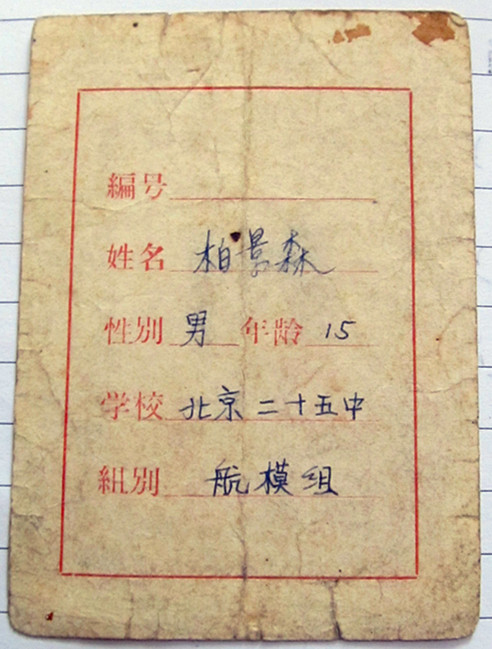 编号
姓名 柏景森
性别 男 年龄 15
学校 北京二十五中
组别 航模组